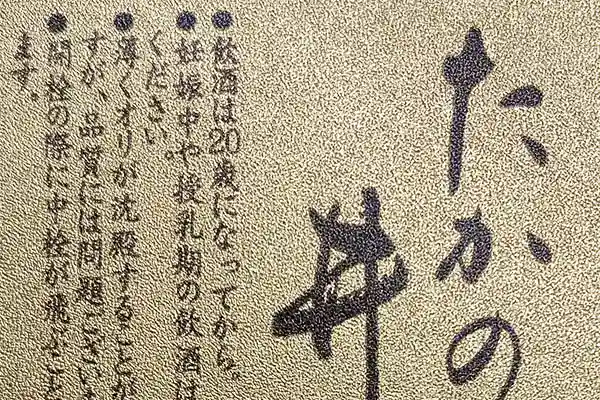 たかの
井
●飲酒は20歳になってから。
●妊娠中や授乳期の飲酒は
ください。
●薄くオリが沈殿することが
すが、品質には問題ござい
●開栓の際に中栓が飛ぶこと
ます。